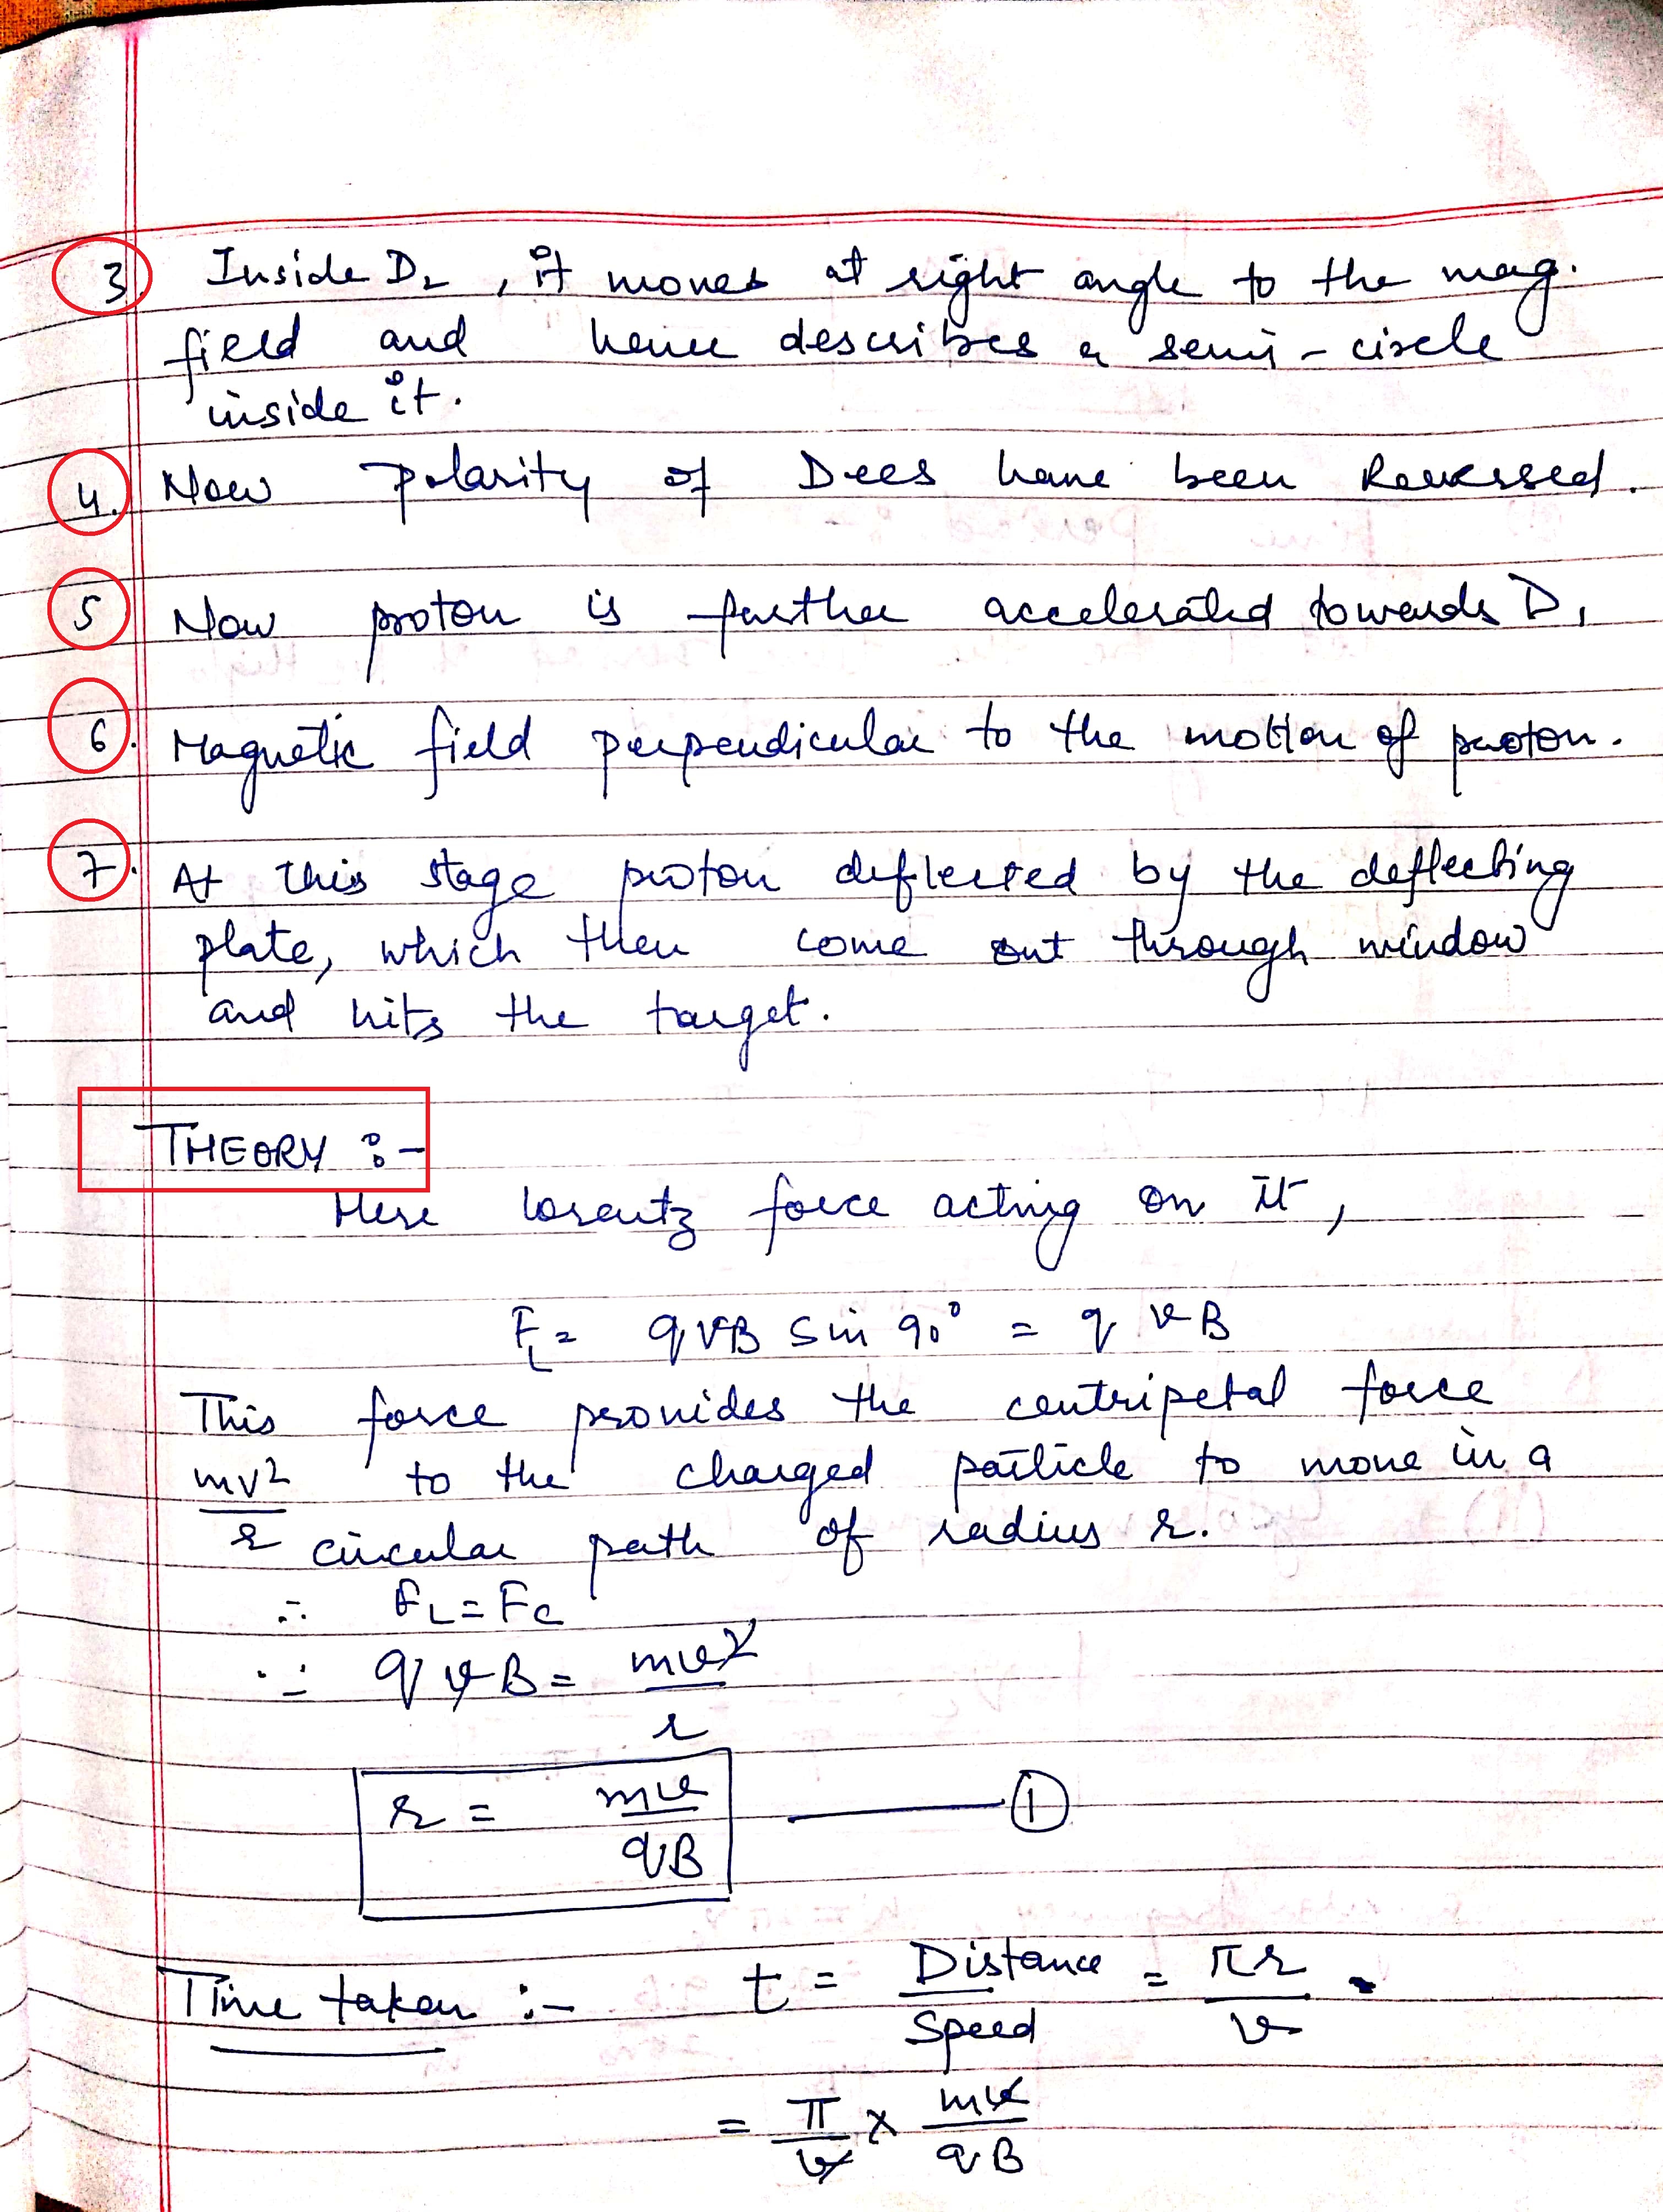 3. Inside D₂, it moves at right angle to the mag.
field and hence describes a semi-circle
inside it.
4. Now polarity of Dees have been Reversed.
5. Now proton is further accelerated towards D₁
6. Magnetic field perpendicular to the motion of proton.
7. At this stage proton deflected by the deflecting
plate, which then come out through window
and hits the target.
THEORY :-
Here lorentz force acting on it,
F_L = qvB sin 90° = qvB
This force provides the centripetal force
mv²/r to the charged particle to move in a
circular path of radius r.
∴ F_L = F_c
∵ qvB = mv²/r
r = mv/qB —— ①
Time taken :- t = Distance/Speed = πr/v
= π/v × mv/qB